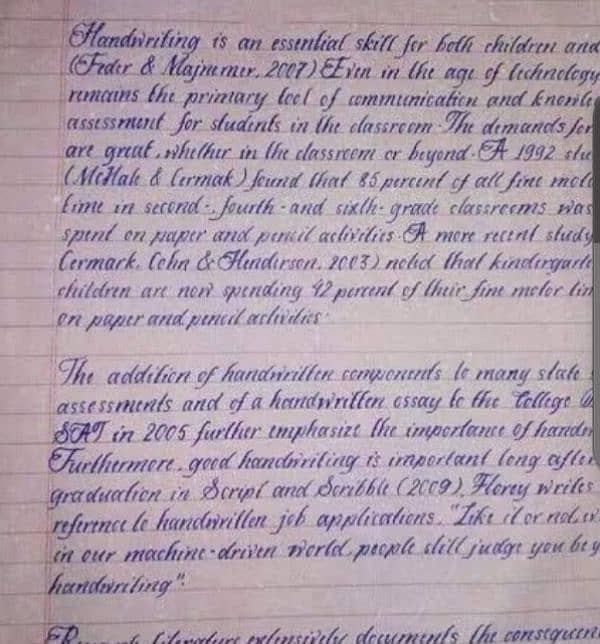 Handwriting is an essential skill for both children and
(Feder & Majnemer, 2007) Even in the age of technology
remains the primary tool of communication and knowle
assessment for students in the classroom. The demands for
are great, whether in the classroom or beyond. A 1992 stu
(McHale & Cermak) found that 85 percent of all fine moto
time in second-, fourth-and sixth-grade classrooms was
spent on paper and pencil activities. A more recent study
Cermark, Cohn & Henderson, 2003) noted that kindergarte
children are now spending 42 percent of their fine motor tim
on paper and pencil activities.
The addition of handwritten components to many state
assessments and of a handwritten essay to the College
SAT in 2005 further emphasize the importance of handw
Furthermore, good handwriting is important long after
graduation in Script and Scribble (2009), Florey writes
reference to handwritten job applications, "Like it or not, ev
in our machine-driven world, people still judge you by y
handwriting".
literature extensively documents the consequen